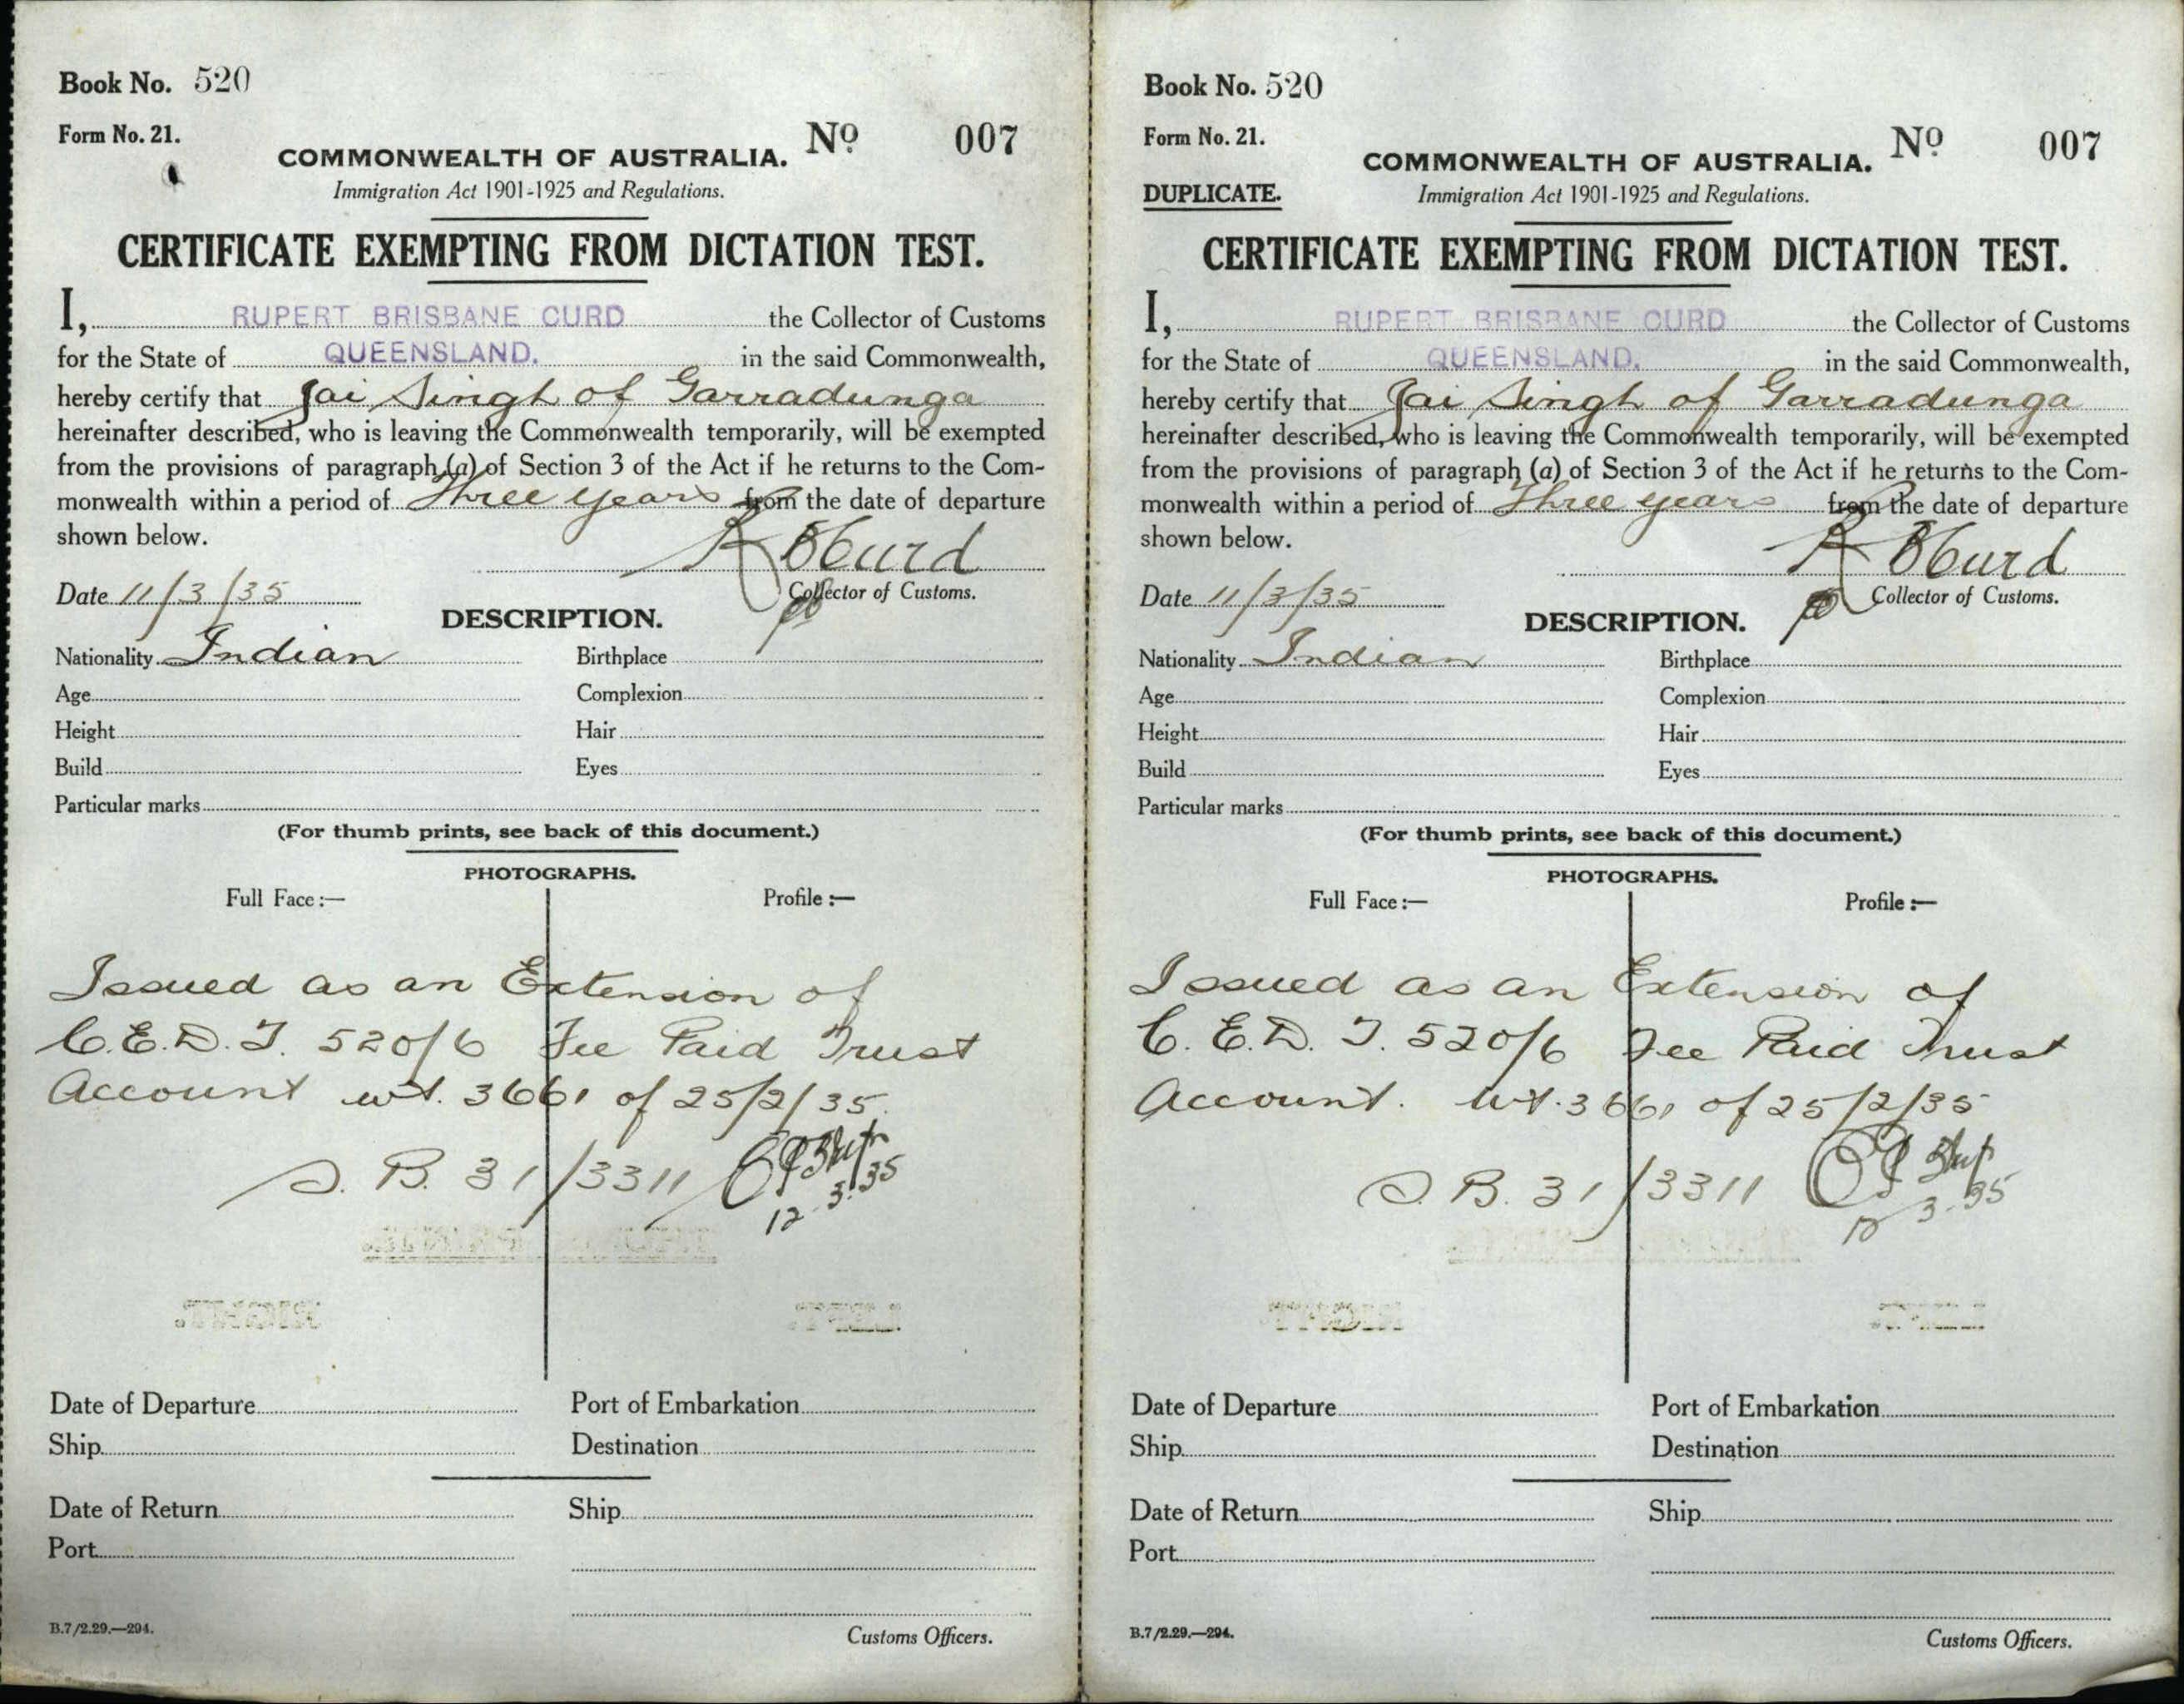 Book No. 520
Form No. 21.
COMMONWEALTH OF AUSTRALIA. No 007
Immigration Act 1901-1925 and Regulations.
CERTIFICATE EXEMPTING FROM DICTATION TEST.
I, RUPERT BRISBANE CURD the Collector of Customs
for the State of QUEENSLAND. in the said Commonwealth,
hereby certify that Jai Singh of Garradunga
hereinafter described, who is leaving the Commonwealth temporarily, will be exempted
from the provisions of paragraph (a) of Section 3 of the Act if he returns to the Com-
monwealth within a period of Three years from the date of departure
shown below.
R B Curd
Date 11/3/35 Collector of Customs.
DESCRIPTION.
Nationality Indian Birthplace
Age Complexion
Height Hair
Build Eyes
Particular marks
(For thumb prints, see back of this document.)
PHOTOGRAPHS.
Full Face :— Profile :—
Issued as an Extension of
C.E.D.T. 520/6 Fee Paid Trust
Account wt. 3661 of 25/2/35.
S. B. 31/3311
12.3.35
Date of Departure Port of Embarkation
Ship Destination
Date of Return Ship
Port
B.7/2.29.—294. Customs Officers.
Book No. 520
Form No. 21.
COMMONWEALTH OF AUSTRALIA. No 007
DUPLICATE. Immigration Act 1901-1925 and Regulations.
CERTIFICATE EXEMPTING FROM DICTATION TEST.
I, RUPERT BRISBANE CURD the Collector of Customs
for the State of QUEENSLAND. in the said Commonwealth,
hereby certify that Jai Singh of Garradunga
hereinafter described, who is leaving the Commonwealth temporarily, will be exempted
from the provisions of paragraph (a) of Section 3 of the Act if he returns to the Com-
monwealth within a period of Three years from the date of departure
shown below.
R B Curd
Date 11/3/35 Collector of Customs.
DESCRIPTION.
Nationality Indian Birthplace
Age Complexion
Height Hair
Build Eyes
Particular marks
(For thumb prints, see back of this document.)
PHOTOGRAPHS.
Full Face :— Profile :—
Issued as an Extension of
C.E.D.T. 520/6 Fee Paid Trust
Account. wt. 3661 of 25/2/35
S. B. 31/3311
12 3.35
Date of Departure Port of Embarkation
Ship Destination
Date of Return Ship
Port
B.7/2.29.—294. Customs Officers.